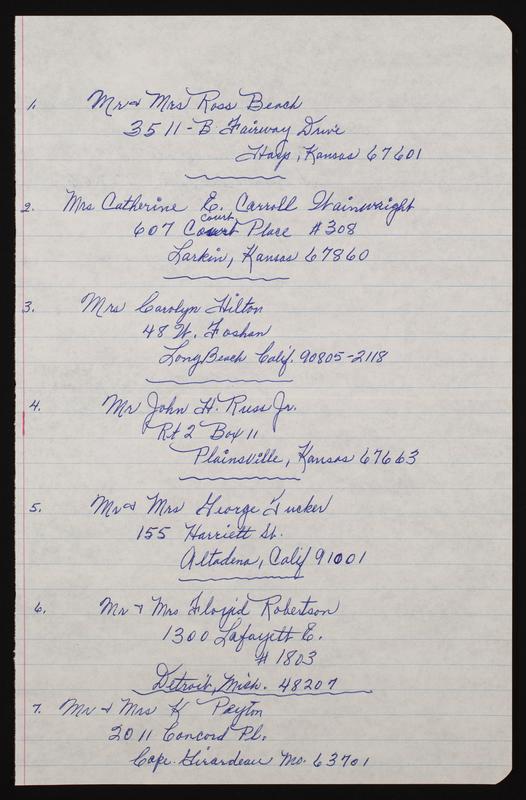 1. Mr & Mrs Ross Beach
3511-B Fairway Drive
Hays, Kansas 67601
2. Mrs Catherine E. Carroll Wainwright
court
607 Court Place #308
Larkin, Kansas 67860
3. Mrs Carolyn Hilton
48 W. Foshan
Long Beach Calif. 90805-2118
4. Mr John H. Russ Jr.
Rt 2 Box 11
Plainsville, Kansas 67663
5. Mr & Mrs George Tucker
155 Harriett St.
Altadena, Calif 91001
6. Mr & Mrs Floyid Robertson
1300 Lafayett E.
# 1803
Detroit, Mish. 48207
7. Mr & Mrs K Payton
2011 Concord Pl.
Cape. Girardeau Mo. 63701